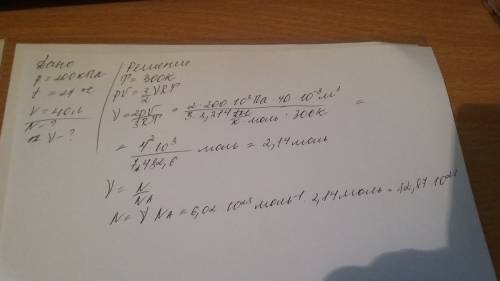 Дано
p = 200 кПа
t = 27 °C
V = 40 л
N = ?
ν - ?
Решение
T = 300К
pV = 3/2 νRT
ν = 2pV/3RT = 2 · 200 · 10³ Па · 40 · 10⁻³ м³ / 3 · 8,314 · моль · 300К =
= моль = 2,14 моль
ν = N/NA
N = ν NA = 6,02 · 10²³ моль⁻¹ · 2,14 моль = 12,87 · 10²³